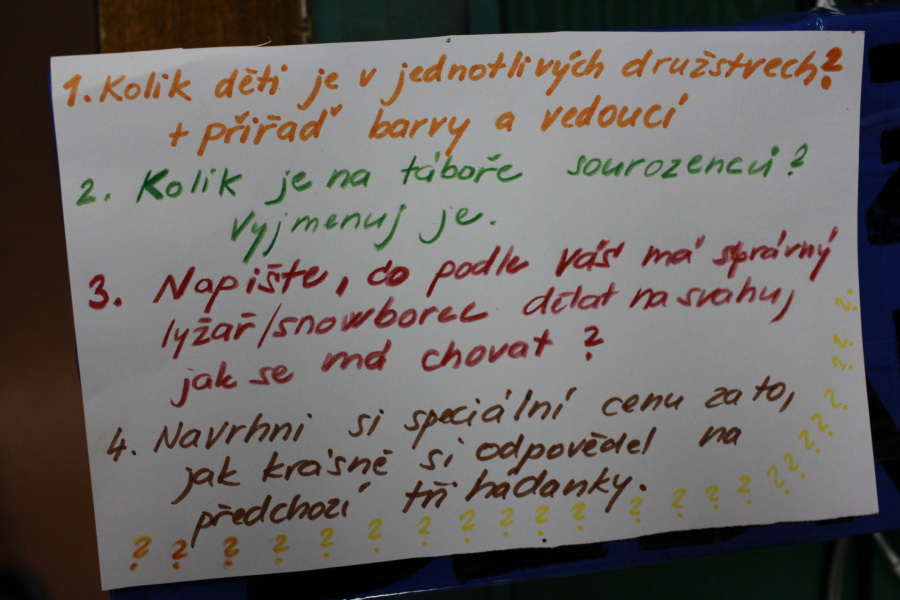 1. Kolik dětí je v jednotlivých družstvech?
+ přiřaď barvy a vedoucí
2. Kolik je na táboře sourozenců?
Vyjmenuj je.
3. Napište, co podle Vás má správný
lyžař/snowborec dělat na svahu,
jak se má chovat?
4. Navrhni si speciální cenu za to,
jak krásně si odpověděl na
předchozí tři hádanky.
? ? ? ? ? ? ? ? ? ? ? ? ? ? ? ? ? ? ? ? ? ? ?